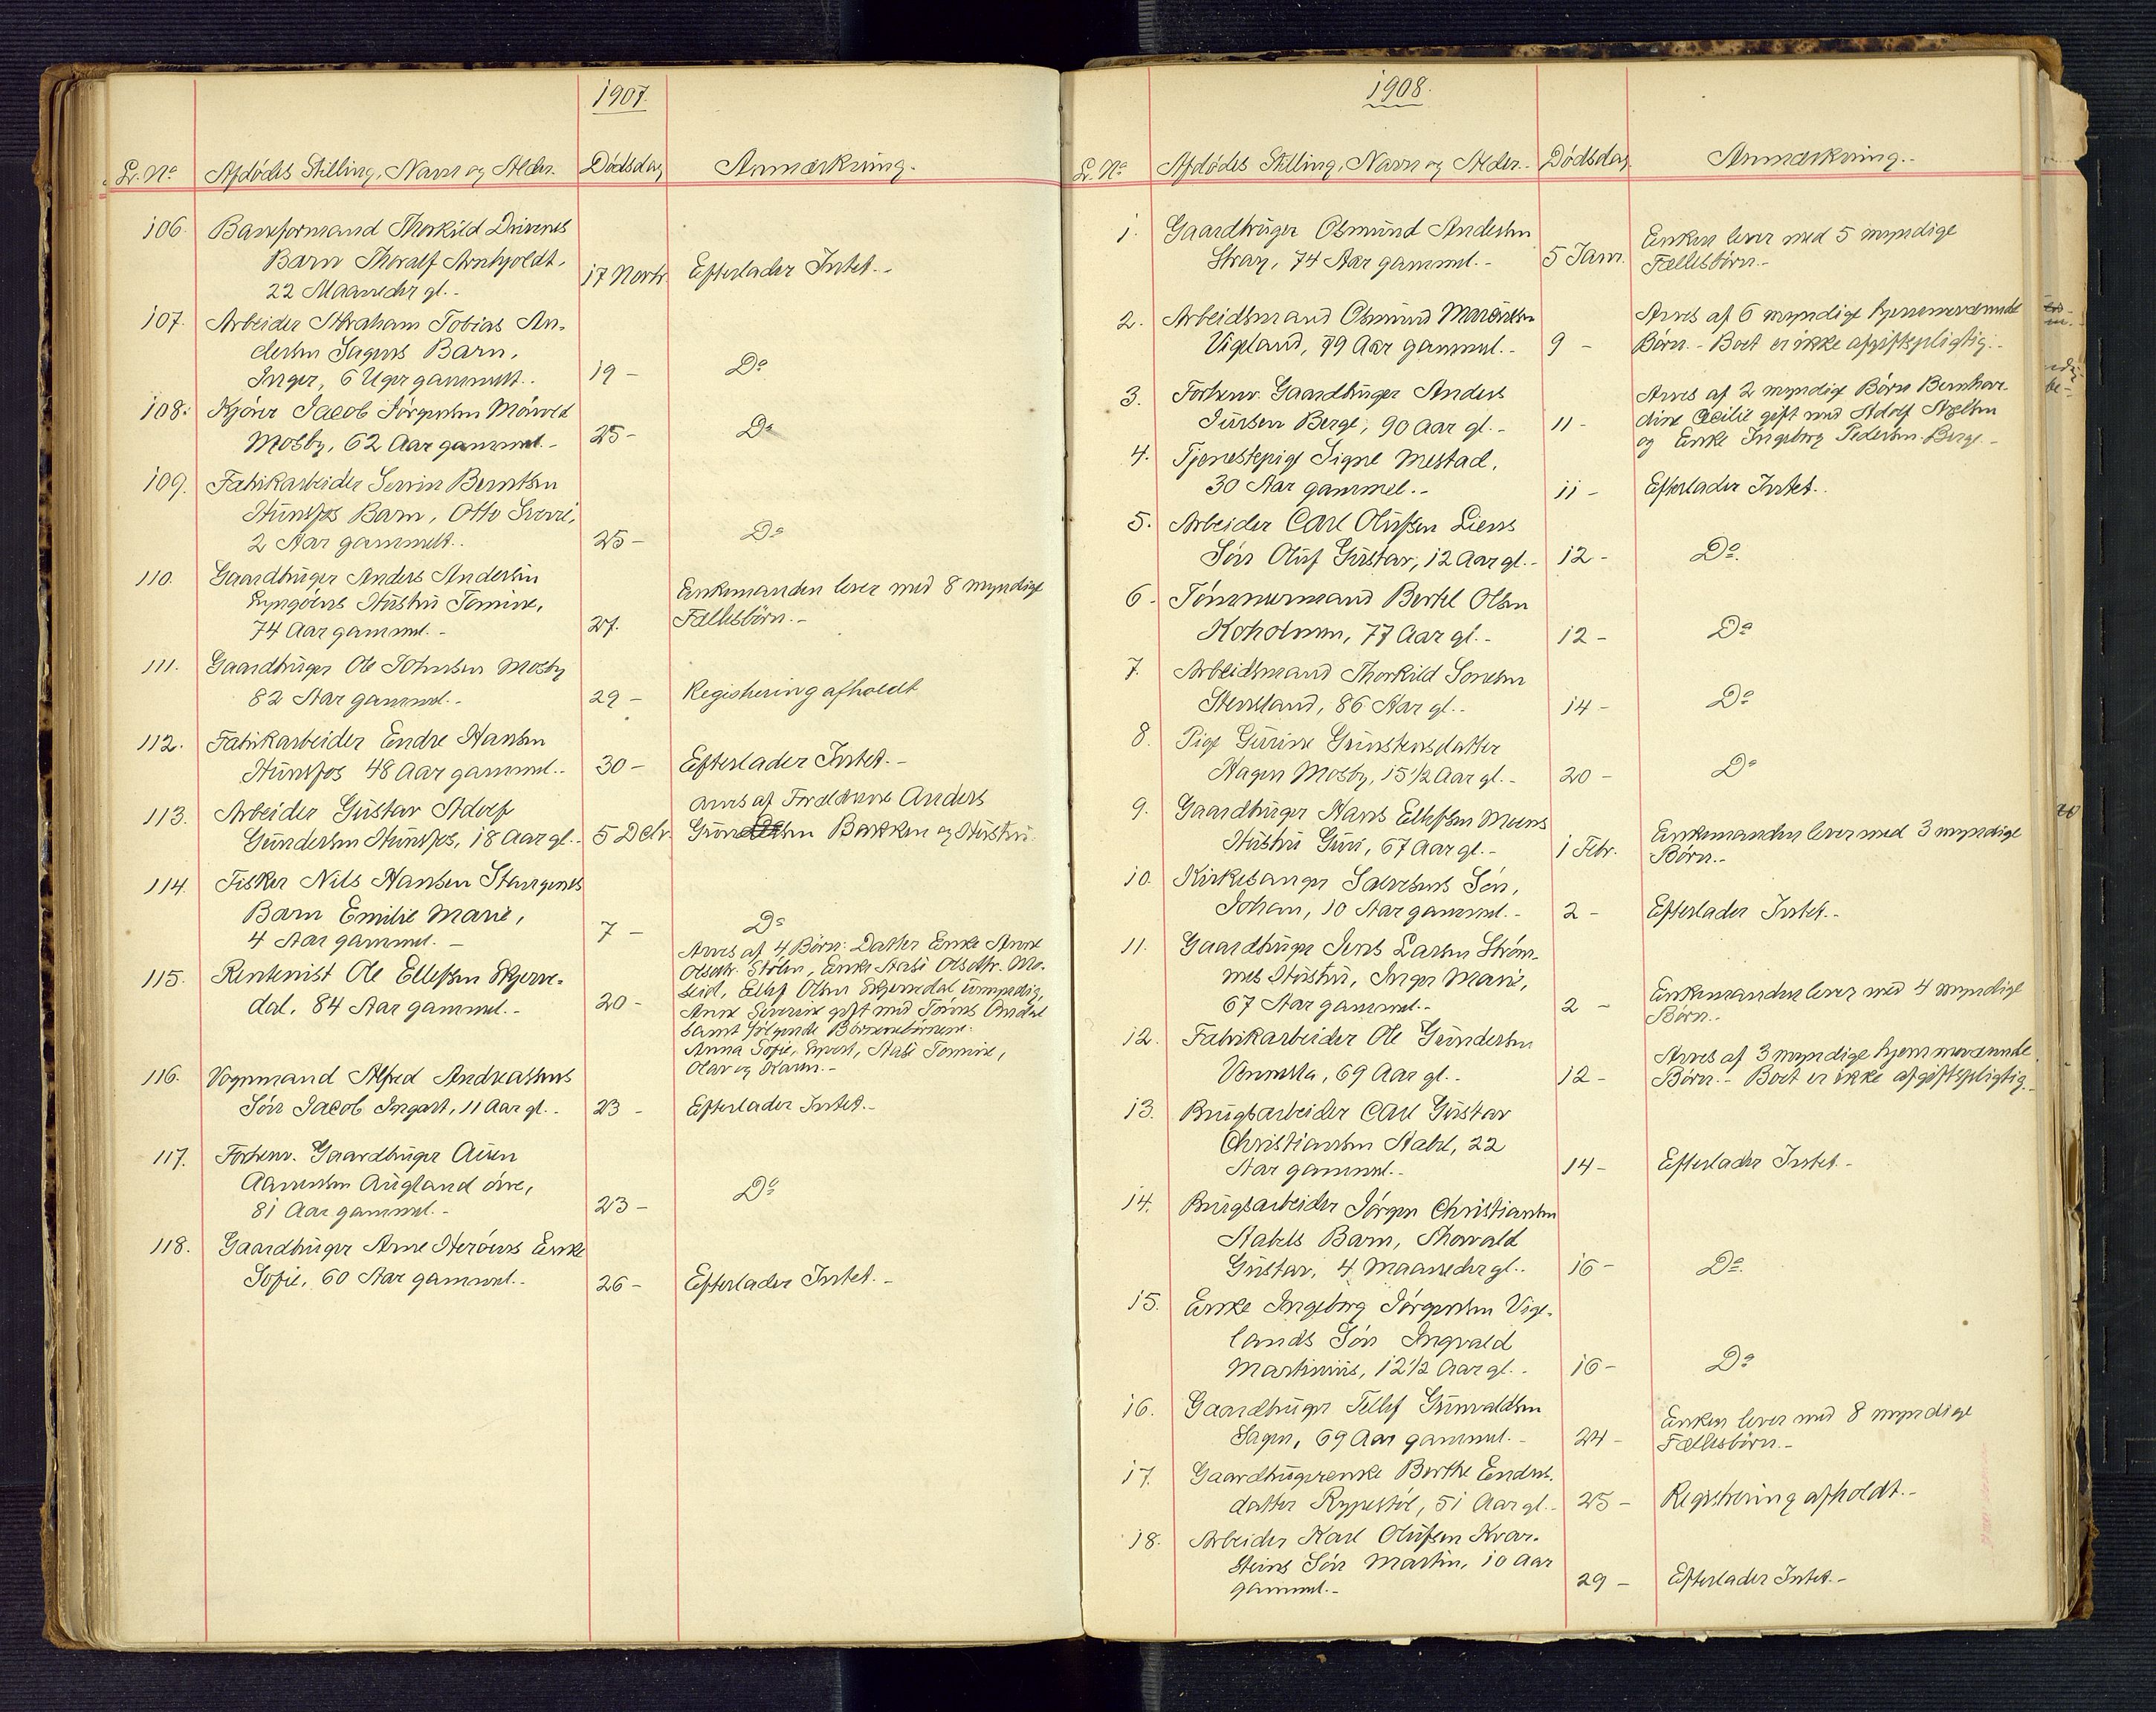 1907.
Lr. No Afdødes Stilling, Navn og Alder. Dødsdag Anmærkning.
106. Banseformand Thorkild Drivenes
Barn Thoralf Arnhjoldt,
22 Maaneder gl.- 17 Novbr. Efterlader Intet.-
107. Arbeider Abraham Tobias An-
dersen Sagens Barn,
Inger, 6 Uger gammelt.. 19 - Do
108. Kjører Jacob Jörgensen
Mosby, 62 Aar gammel.- 25- Do
109. Fabrikarbeider Berntsen
Hunsfos Barn, Otto Sverre,
2 Aar gammelt.. 25 - Do
110. Gaardbruger Anders Andersen
Hustru Tomine,
74 Aar gammel.- 27. Enkemanden lever med 8 myndige
Fællesbörn.-
111. Gaardbruger Ole Johnsen Mosby
82 Aar gammel.- 29 - Registrering afholdt
112. Fabrikarbeider Endre Hansen
Hunsfos 48 Aar gammel.. 30 - Efterlader Intet.-
113. Arbeider Gustav Adolf
Gundersen Hunsfos, 18 Aar gl.. 5 Decbr. Arves af Forældrene Anders
Gundersen Bakken og Hustru.
114. Fisker Nils Hansen Stangenes
Barn Emilie Marie,
4 Aar gammel.- 7 - Do
115. Rentenist Ole Ellefsen Skjerve-
dal, 84 Aar gammel.- 20 - Arves af 4 Börn: Datter Enke Anne
Olsdtr. Stölen, Enke Olsdtr. Mo-
seid, Ellef Olsen Skjervedal umyndig,
Anne Severine gift med
samt følgende Börnebörnene:
Anna Sofie, Tomine,
Olav og
116. Vognmand Alfred Andreassens
Sön Jacob Ingart, 11 Aar gl.. 23 - Efterlader Intet.-
117. Forhenv. Gaardbruger
Aanensen Augland övre,
81 Aar gammel.- 23 - Do
118. Gaardbruger Arne Enke
Sofie, 60 Aar gammel.. 26 - Efterlader Intet.-
1908.
Lr. No Afdødes Stilling, Navn og Alder.. Dødsdag Anmærkning.-
1. Gaardbruger Osmund Andersen
Stray, 74 Aar gammel.- 5 Janr. Enken lever med 5 myndige
Fællesbörn.-
2. Arbeidsmand Osmund
Vigeland, 79 Aar gammel.- 9 - Arves af 6 myndige hjemmeværende
Börn.- Boet er ikke afgiftspligtig.-
3. Forhenv. Gaardbruger Anders
Jursen Berge, 90 Aar gl.- 11 - Arves af 2 myndige Börn Bernhar-
dine Cecilie gift med Adolf
og Enke Ingeborg Pedersen Berge.-
4. Tjenestepige Signe Mestad,
30 Aar gammel.- 11 - Efterlader Intet..
5. Arbeider Carl Olufsen Liens
Sön Oluf Gustav, 12 Aar gl.- 12 - Do.
6. Tömmermand Bertel Olsen
Koholmen, 77 Aar gl.- 12 - Do
7. Arbeidsmand Thorkild
Stensland, 86 Aar gl.. 14 - Do
8. Pige Gurine Gunstensdatter
Hagen Mosby, 15 1/2 Aar gl.- 20 - Do
9. Gaardbruger Hans Ellefsen Moens
Hustru Guri, 67 Aar gl.- 1 Febr. Enkemanden lever med 3 myndige
Börn.-
10. Kirkesanger Salvesens Sön,
Johan, 10 Aar gammel.- 2 - Efterlader Intet.-
11. Gaardbruger Jens Larsen Ström-
mes Hustru, Inger Marie,
67 Aar gammel.- 2 - Enkemanden lever med 4 myndige
Börn.-
12. Fabrikarbeider Ole Gundersen
Vennesla, 69 Aar gl.. 12 - Arves af 3 myndige hjemmeværende
Börn.- Boet er ikke afgiftspligtig.-
13. Brugsarbeider Carl Gustav
Christiansen Stabel, 22
Aar gammel.- 14 - Efterlader Intet.-
14. Brugsarbeider Jörgen Christiansen
Stabels Barn, Thorvald
Gustav, 4 Maaneder gl.. 16 - Do.
15. Enke Ingeborg Jörgensen Vige-
lands Sön Ingvald
Martinius, 12 1/2 Aar gl.. 16 - Do
16. Gaardbruger Tellef Gunvaldsen
Sagen, 69 Aar gammel.- 24 - Enken lever med 8 myndige
Fællesbörn.-
17. Gaardbrugerenke Berthe Endres-
datter Rypestöl, 51 Aar gl.- 25 - Registrering afholdt.-
18. Arbeider Karl Olufsen Kvar-
steins Sön Martin, 10 Aar
gammel.- 29 - Efterlader Intet.-